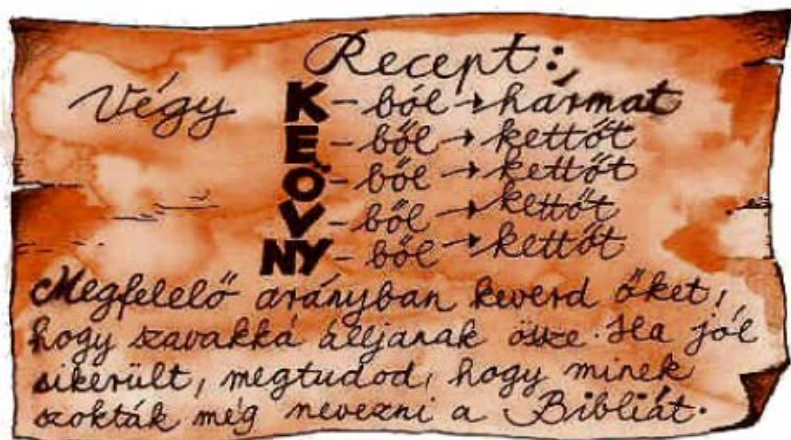 Recept:
Végy K-ból → hármat
E-ből → kettőt
Ö-ből → kettőt
V-ből → kettőt
NY-ből → kettőt
Megfelelő arányban keverd őket,
hogy szavakká álljanak össze. Ha jól
sikerült, megtudod, hogy minek
szokták még nevezni a Bibliát.